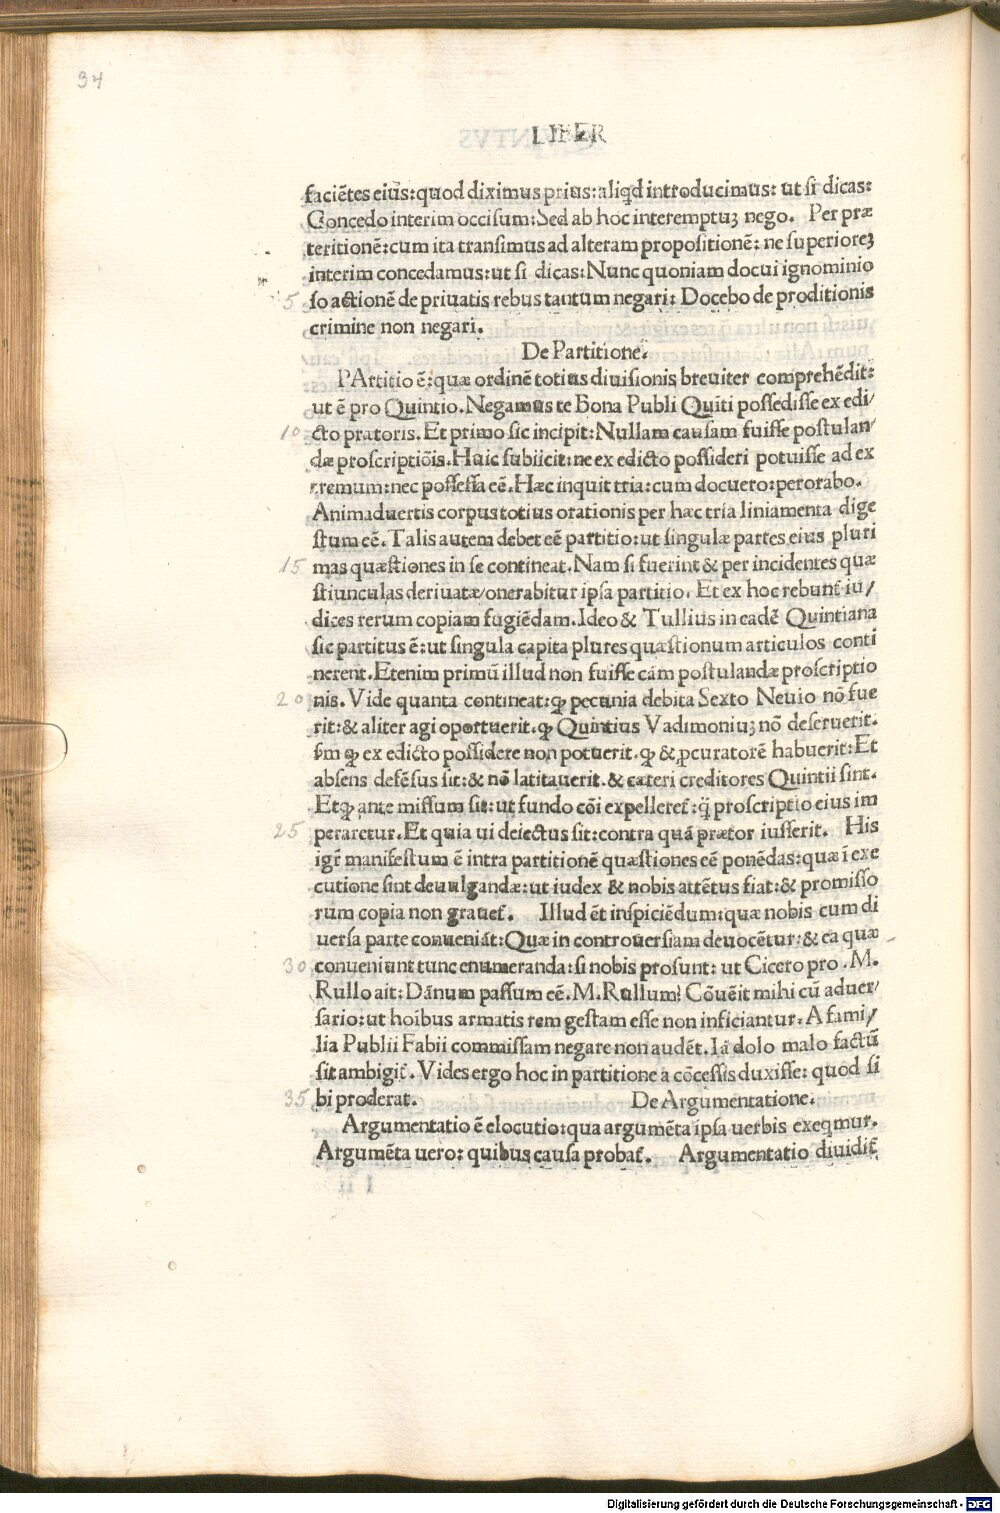 34
LIBER
faciẽtes eius:quod diximus prius:aliqd introducimus: ut si dicas:
Concedo interim occisum:Sed ab hoc interemptuꝫ nego. Per præ
teritionẽ:cum ita transimus ad alteram propositionẽ: ne superioreꝫ
interim concedamus:ut si dicas:Nunc quoniam docui ignominio
5 so actionẽ de priuatis rebus tantum negari: Docebo de proditionis
crimine non negari.
De Partitione.
PArtitio ẽ:quæ ordinẽ totius diuisionis breuiter comprehẽdit:
ut ẽ pro Quintio.Negamus te Bona Publi Quĩti possedisse ex edi/
10 cto prætoris.Et primo sic incipit:Nullam causam fuisse postulan/
dæ proscriptiõis.Huic subiicit:ne ex edicto possideri potuisse ad ex
tremum:nec possessa eẽ.Hæc inquit tria:cum docuero:perorabo.
Animaduertis corpus totius orationis per hæc tria liniamenta dige
stum eẽ.Talis autem debet eẽ partitio:ut singulæ partes eius pluri
15 mas quæstiones in se contineat.Nam si fuerint & per incidentes quæ
stiunculas deriuatæ/onerabitur ipsa partitio. Et ex hoc rebunt iu/
dices rerum copiam fugiẽdam.Ideo & Tullius in eadẽ Quintiana
sic partitus ẽ:ut singula capita plures quæstionum articulos conti
nerent.Etenim primũ illud non fuisse cãm postulandæ proscriptio
20 nis.Vide quanta contineat:ꝙ pecunia debita Sexto Neuio nõ fue
rit:& aliter agi oportuerit.ꝙ Quintius Vadimoniuꝫ nõ deseruerit.
ꝙ ex edicto possidere non potuerit.ꝙ & ꝓcuratorẽ habuerit:Et
absens defẽsus sit:& nõ latitauerit.& cæteri creditores Quintii sint.
Et ꝙ ante missum sit:ut fundo cõi expelleret̃:q̃ proscriptio eius im
25 peraretur.Et quia ui deiectus sit:contra quã prætor iusserit. His
igr̃ manifestum ẽ intra partitionẽ quæstiones eẽ ponẽdas:quæ ĩ exe
cutione sint deuulgandæ:ut iudex & nobis attẽtus fiat:& promisso
rum copia non grauet̃. Illud ẽt inspiciẽdum:quæ nobis cum di
uersa parte conueniãt:Quæ in controuersiam deuocẽtur:& ea quæ
30 conueniunt tunc enumeranda:si nobis prosunt: ut Cicero pro .M.
Rullo ait:Dãnum passum eẽ.M.Rullum! Cõuẽit mihi cũ aduer/
sario:ut hoĩbus armatis rem gestam esse non inficiantur.A fami/
lia Publii Fabii commissam negare non audẽt.Iã dolo malo factũ
sit ambigit̃.Vides ergo hoc in partitione a cõcessis duxisse: quod si
35 bi proderat. De Argumentatione.
Argumentatio ẽ elocutio:qua argumẽta ipsa uerbis exeqmur.
Argumẽta uero: quibus causa probat̃. Argumentatio diuidit̃
Digitalisierung gefördert durch die Deutsche Forschungsgemeinschaft - DFG